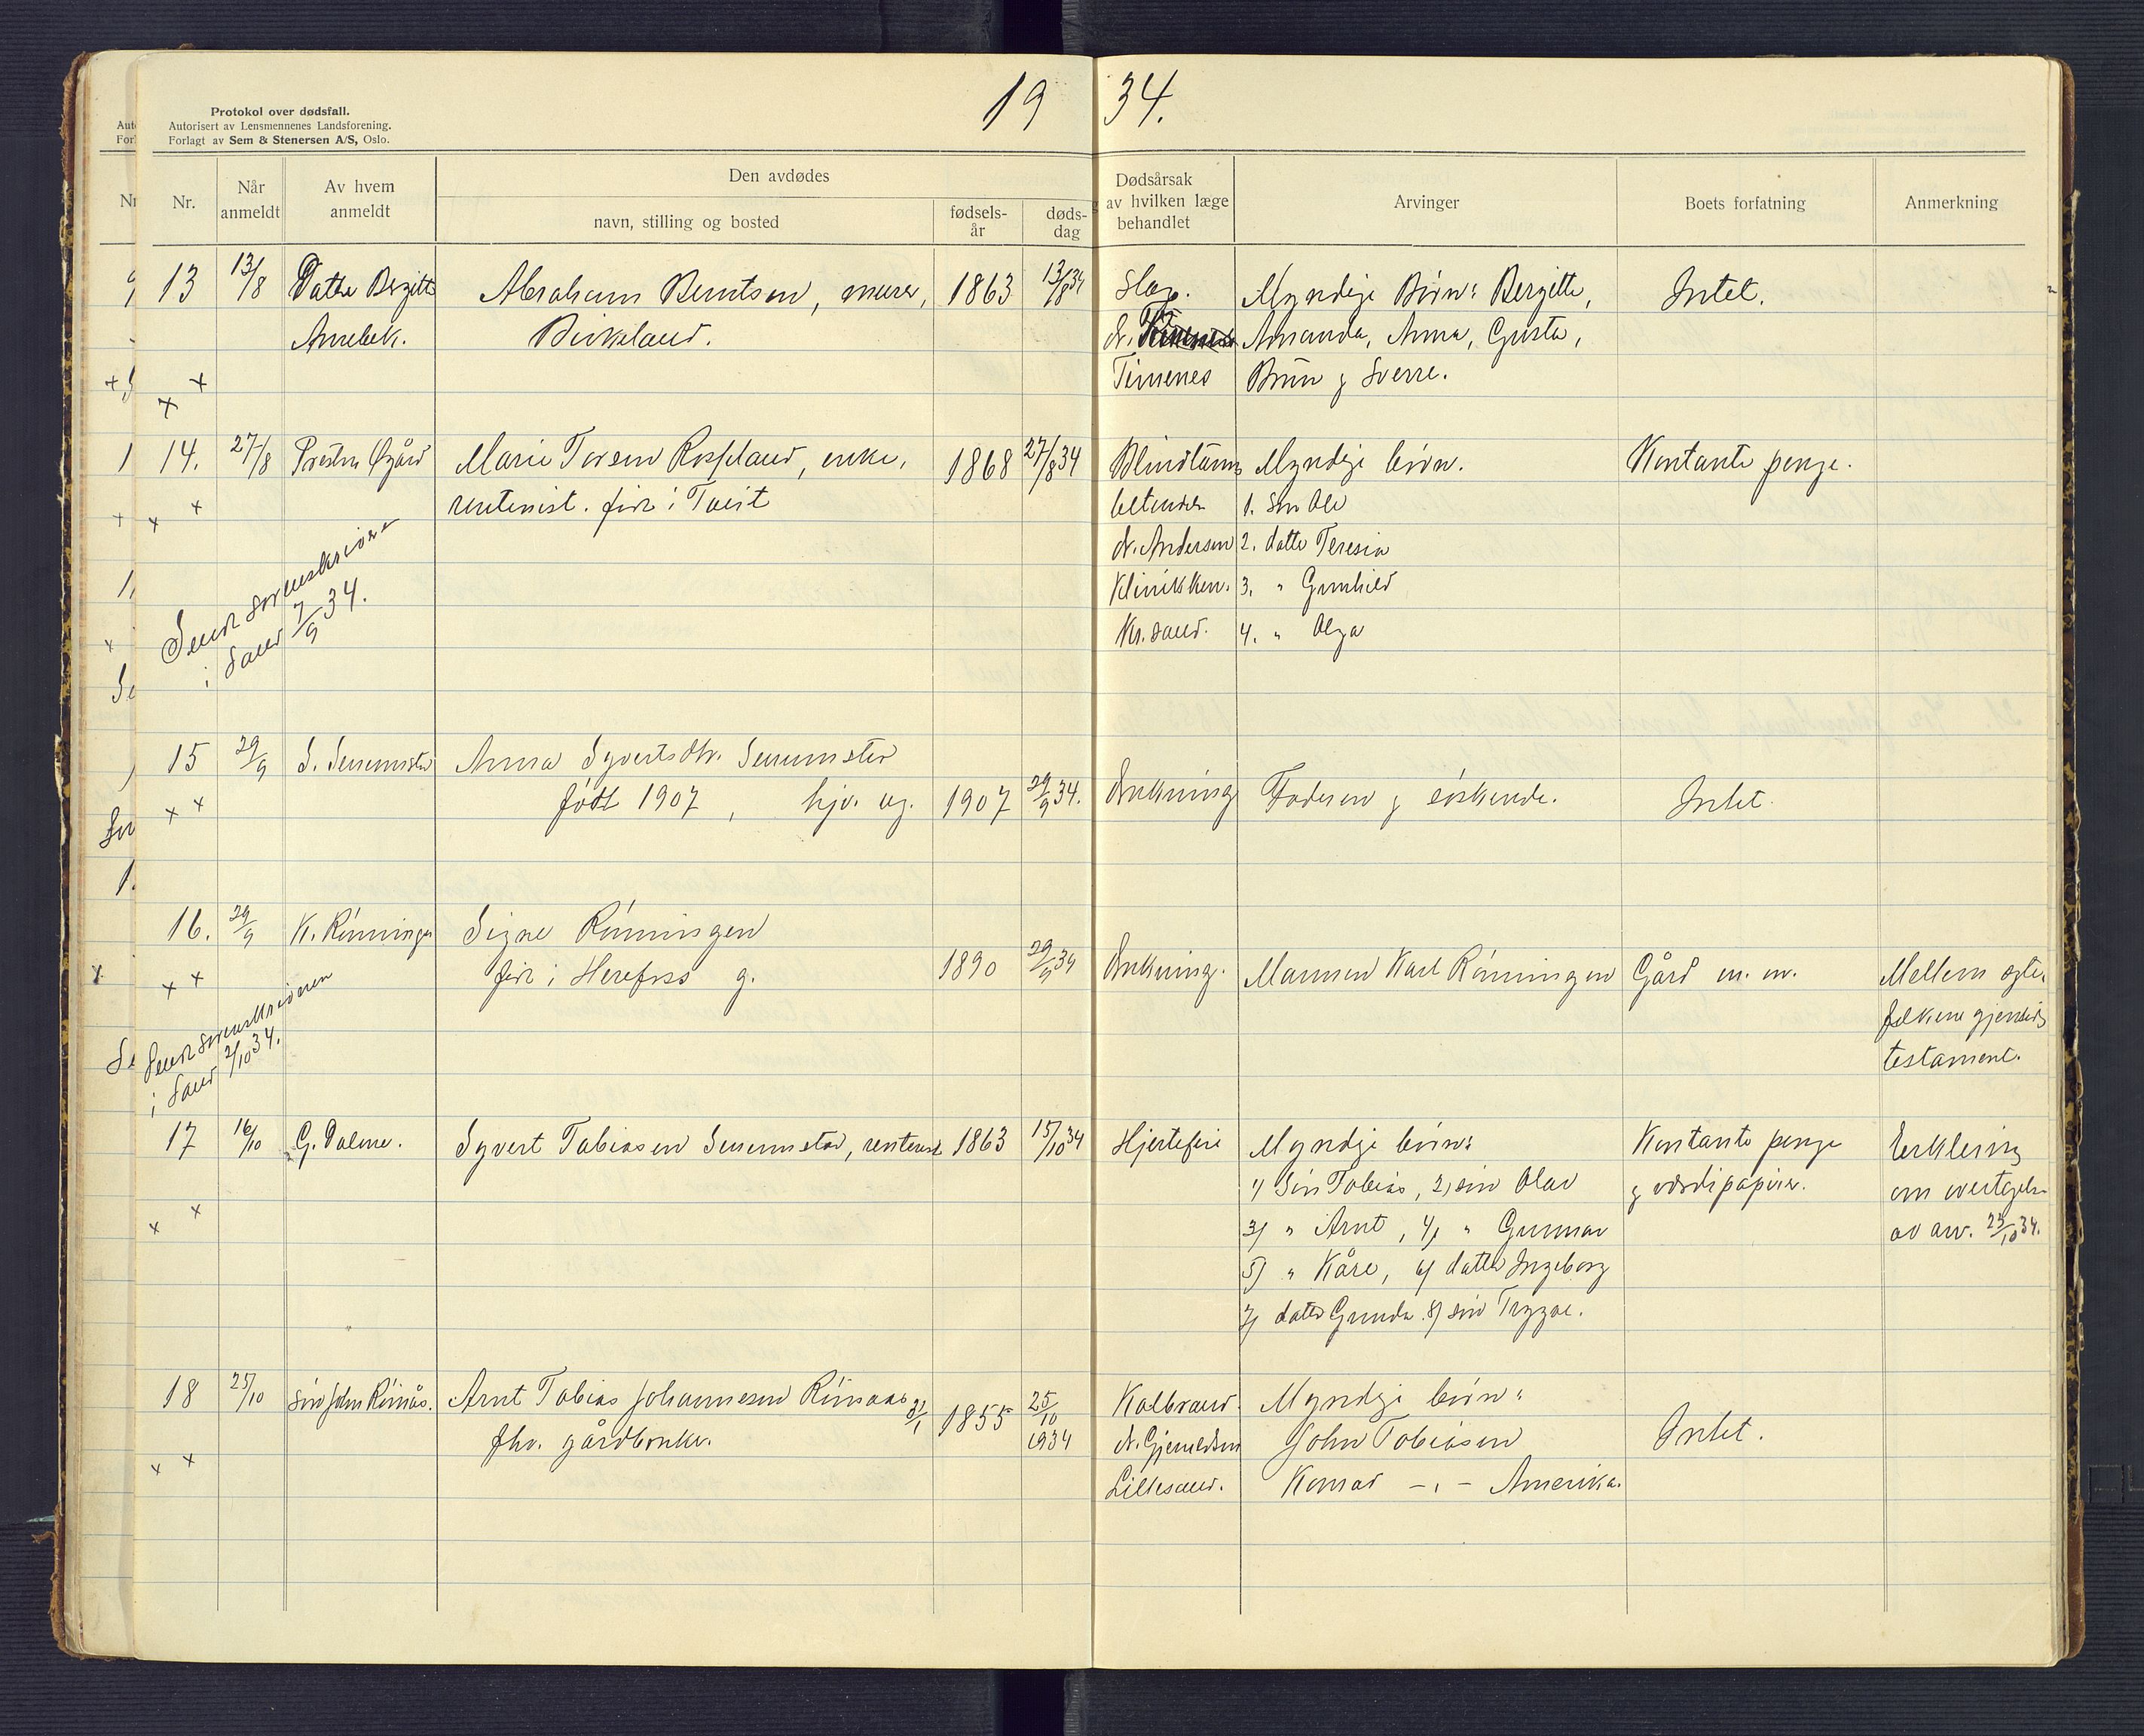 19 34.
Protokol over dødsfall.
Autorisert av Lensmennenes Landsforening.
Forlagt av Sem & Stenersen A/S, Oslo.
Nr.
Når anmeldt
Av hvem anmeldt
Den avdødes
navn, stilling og bosted
fødsels-år
døds-dag
Dødsårsak
av hvilken læge
behandlet
Arvinger
Boets forfatning
Anmerkning
13 13/8 Datter Bergitte Abraham Berntsen, murer, 1863 13/8 34 Slag. Myndige Børn: Bergitte, Intet.
Birkeland. dr. Amanda, Anna, Gusta,
Timenes og Sverre.
14. 27/8 Presten Øgård Marie Torsen Rosseland, enke, 1868 27/8 34 Blindtarms Myndige børn. Kontante penge.
rentenist. før i Tveit betendelse 1. Søn Ole
dr. Andersen 2. datter Teresia
Klinikken. 3. " Gunhild
Kr.sand. 4. " Olga
Sendt sorenskriveren
i Sand 7/9 34.
15 29/9 S. Senumstad Anna Syvertsdtr. Senumstad
født 1907, hjv. ug. 1907 29/9 34. Drukning Faderen og søskende. Intet.
16. 29/9 K. Rønningen Signe Rønningen
før i Herefoss g. 1890 29/9 34 Drukning. Mannen Karl Rønningen Gård m. m. Mellem egte-
folkene gjensidig
testament.
Sendt sorenskriveren
i Sand 2/10 34.
17 16/10 G. Dalene. Syvert Tobiasen Senumstad, rentenist 1863 15/10 34 Hjertefeil Myndige børn: Kontante penge Erklering
1) Søn Tobias, 2) søn Olav og værdipapirer. om overtagelse
3) " Arnt, 4) " Gunnar av arv. 23/10 34.
5) " Kåre, 6) datter Ingeborg
7) datter Gunda. 8) søn Trygve.
18 25/10 Søn John Rønås. Arnt Tobias Johannesen Rønaas 31/1 1855 25/10 1934 Kolbrand. Myndige børn: Intet.
fhv. gårdbruker. dr. Gjeruldsen John Tobiasen
Lillesand. Konrad -"- Amerika.